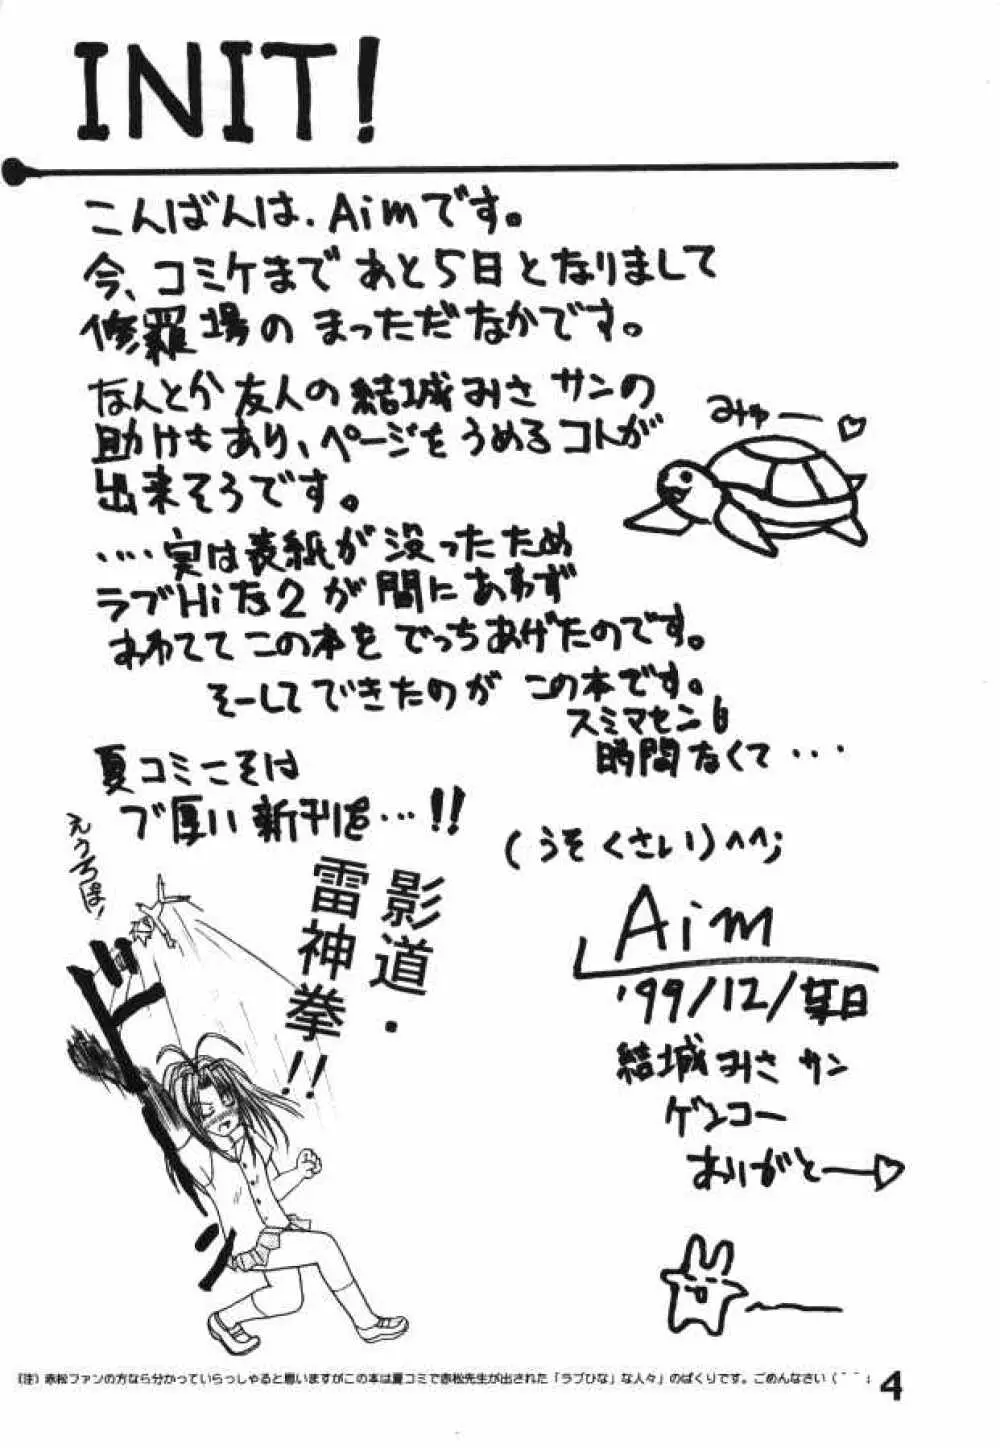 INIT!
こんばんは、Aimです。
今、コミケまであと5日となりまして
修羅場のまっただなかです。
なんとか友人の結城みさサンの
助けもあり、ページをうめるコトが
出来そうです。
みゅー♡
‥‥実は表紙が没ったため
ラブHiな2が間にあわず
あわててこの本をでっちあげたのです。
そーしてできたのがこの本です。
スミマセン
時間なくて・・・
夏コミこそは
ブ厚い新刊を…!!
(うそくさい)^^;
えぅちぽ!
影道・
雷神拳!!
ドーン
Aim
'99/12/某日
結城みさサン
ゲンコー
ありがとー♡
(注) 赤松ファンの方なら分かっていらっしゃると思いますがこの本は夏コミで赤松先生が出された「ラブひな」な人々」のぱくりです。ごめんなさい(^^;
4